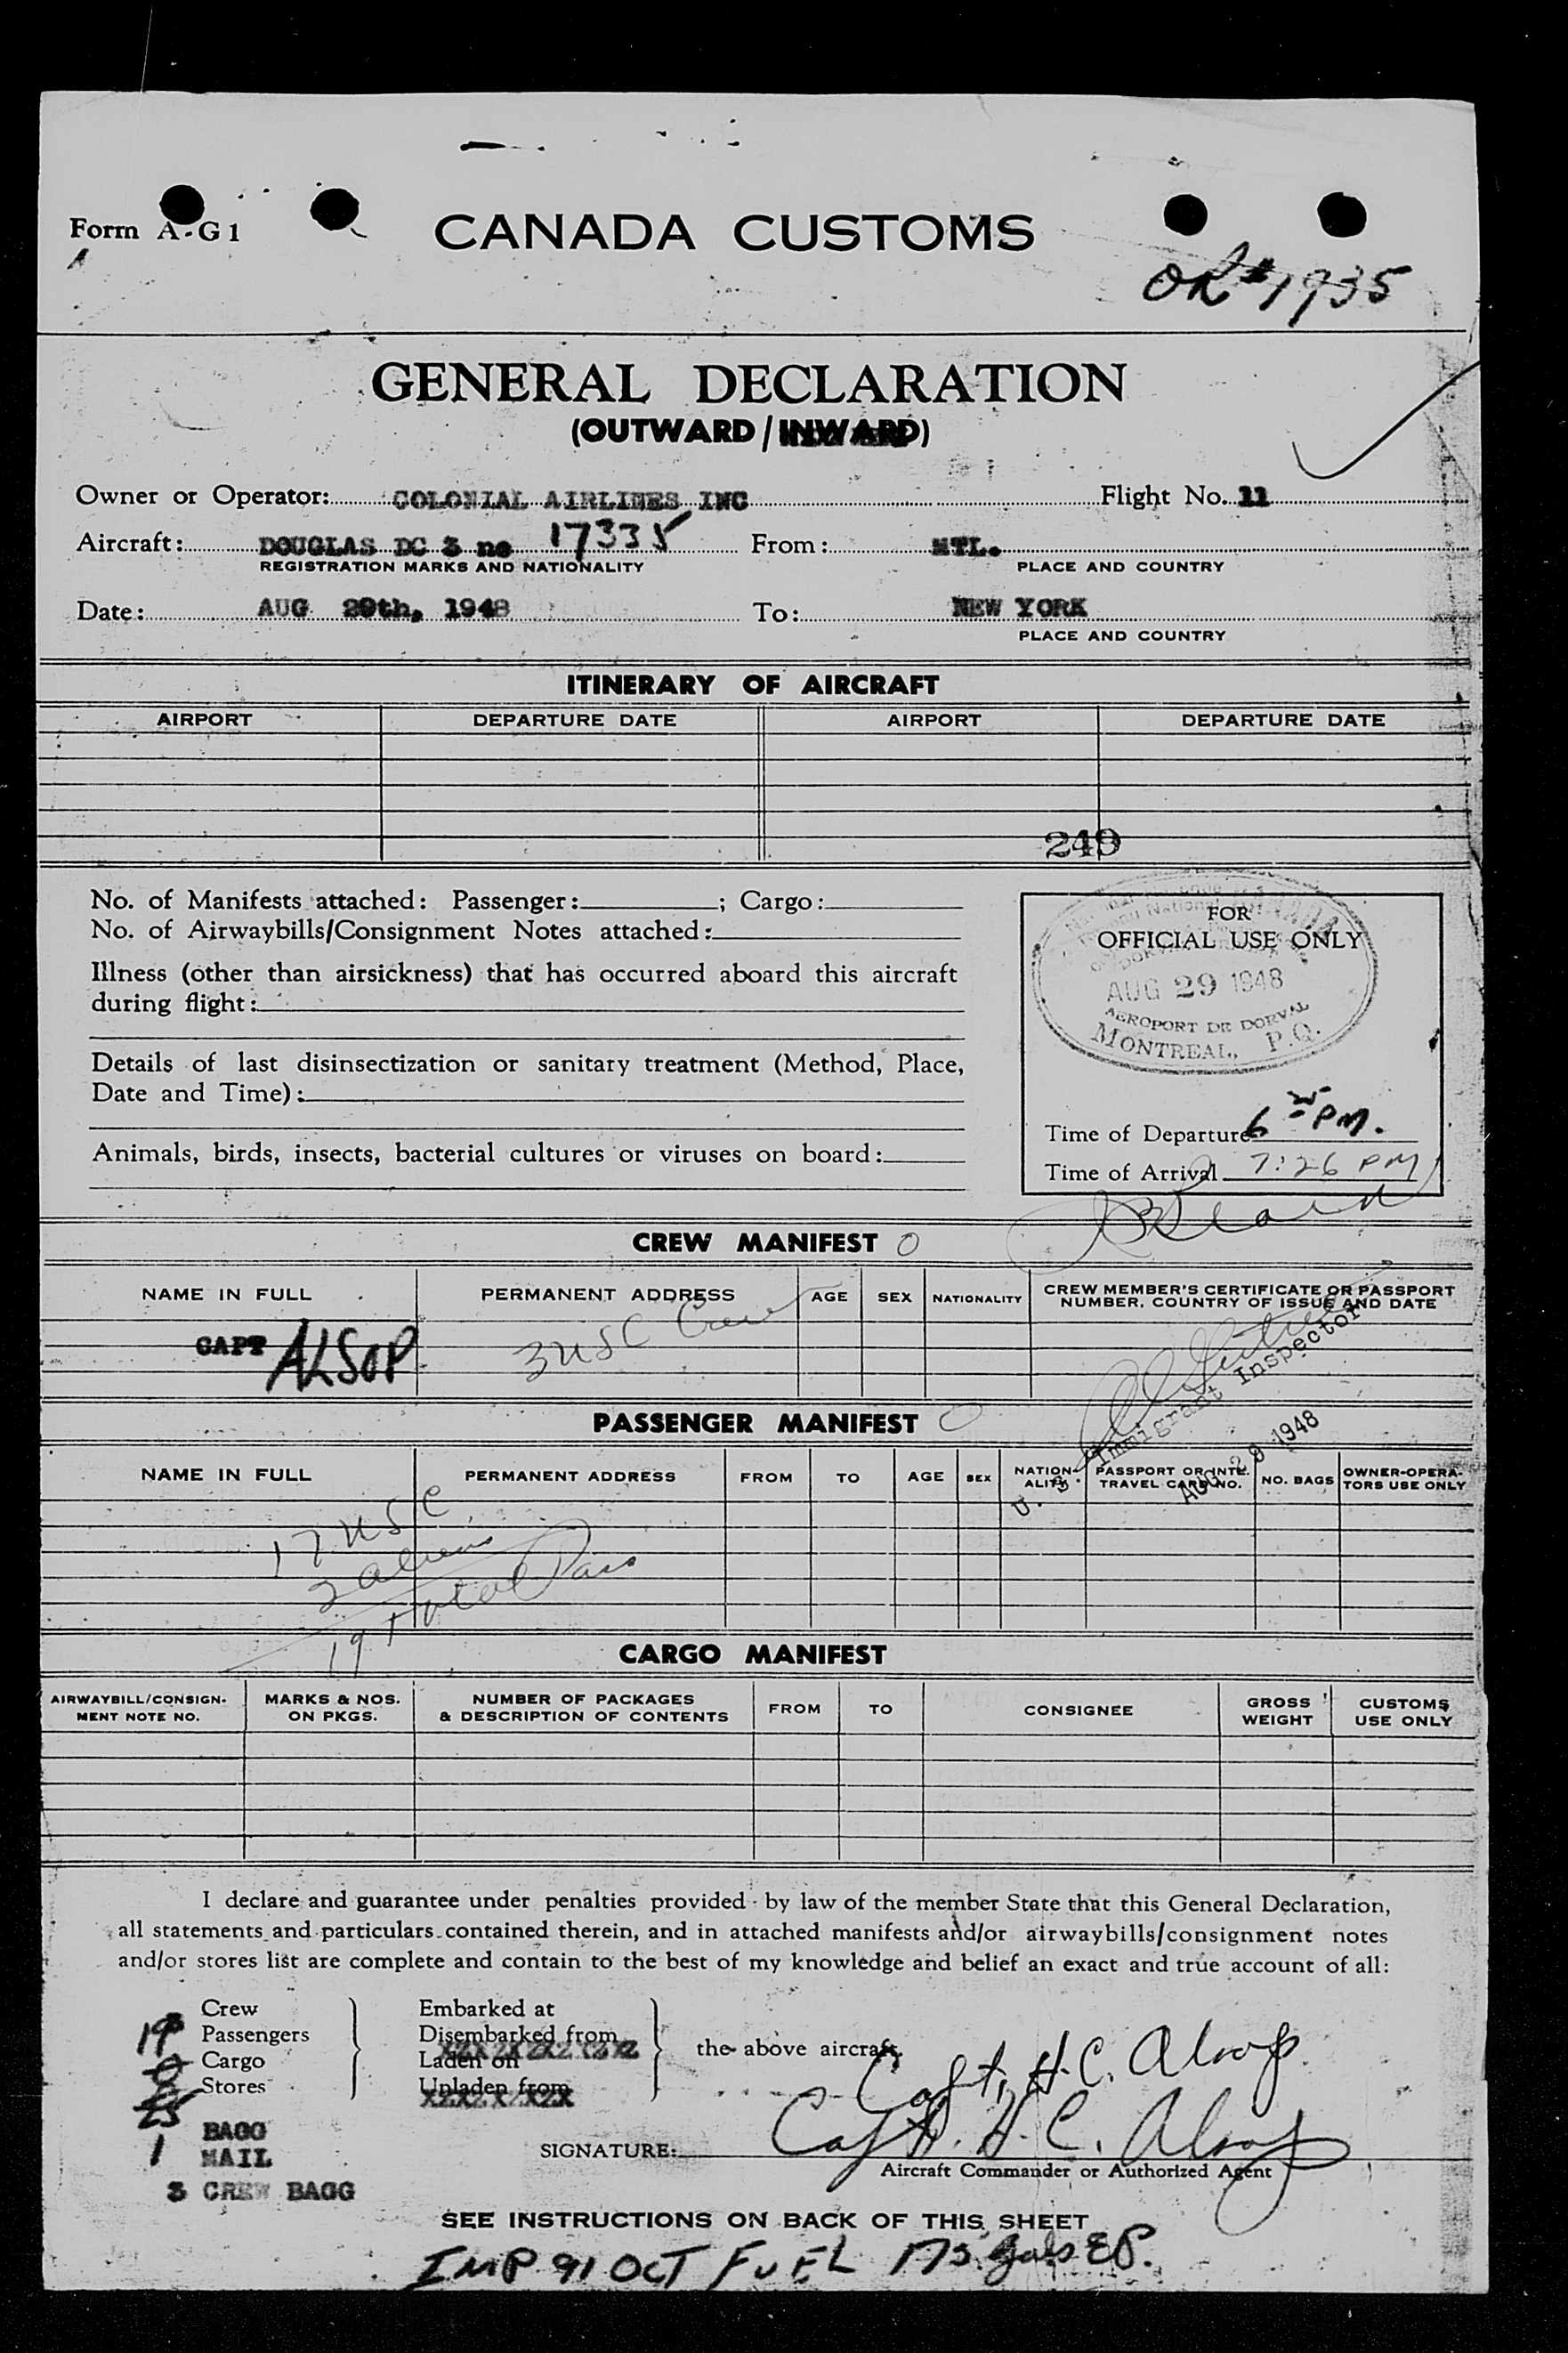 Form A-G1
CANADA CUSTOMS
OR#1935
GENERAL DECLARATION
(OUTWARD/INWARD)
Owner or Operator: COLONIAL AIRLINES INC Flight No. 11
Aircraft: DOUGLAS DC 3 no 17335 From: MTL.
REGISTRATION MARKS AND NATIONALITY PLACE AND COUNTRY
Date: AUG 29th, 1948 To: NEW YORK
PLACE AND COUNTRY
ITINERARY OF AIRCRAFT
AIRPORT DEPARTURE DATE AIRPORT DEPARTURE DATE
249
No. of Manifests attached: Passenger: ; Cargo:
No. of Airwaybills/Consignment Notes attached:
Illness (other than airsickness) that has occurred aboard this aircraft
during flight:
Details of last disinsectization or sanitary treatment (Method, Place,
Date and Time):
Animals, birds, insects, bacterial cultures or viruses on board:
FOR
OFFICIAL USE ONLY
AUG 29 1948
AEROPORT DE DORVAL
MONTREAL, P.Q.
Time of Departure 6 PM.
Time of Arrival 7:26 PM
CREW MANIFEST
NAME IN FULL PERMANENT ADDRESS AGE SEX NATIONALITY CREW MEMBER'S CERTIFICATE OR PASSPORT
NUMBER, COUNTRY OF ISSUE AND DATE
CAPT ALSOP 3 USC Crew
U. S. Immigrant Inspector
AUG 29 1948
PASSENGER MANIFEST
NAME IN FULL PERMANENT ADDRESS FROM TO AGE SEX NATION-
ALITY PASSPORT OR INTL.
TRAVEL CARD NO. NO. BAGS OWNER-OPERA-
TORS USE ONLY
17 USC
2 aliens
19 Total Pass
CARGO MANIFEST
AIRWAYBILL/CONSIGN-
MENT NOTE NO. MARKS & NOS.
ON PKGS. NUMBER OF PACKAGES
& DESCRIPTION OF CONTENTS FROM TO CONSIGNEE GROSS
WEIGHT CUSTOMS
USE ONLY
I declare and guarantee under penalties provided by law of the member State that this General Declaration,
all statements and particulars contained therein, and in attached manifests and/or airwaybills/consignment notes
and/or stores list are complete and contain to the best of my knowledge and belief an exact and true account of all:
Crew Embarked at
19 Passengers Disembarked from
0 Cargo Laden on the above aircraft.
Stores Unladen from
Capt, H.C. Alsop.
25 BAGG
1 MAIL
3 CREW BAGG
SIGNATURE: Capt. H. C. Alsop
Aircraft Commander or Authorized Agent
SEE INSTRUCTIONS ON BACK OF THIS SHEET
IMP 91 OCT FUEL 175 gals EP.